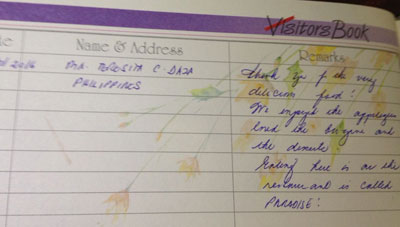 Visitors Book
Name & Address
Remarks
MA. TERESITA C. DAZA
PHILIPPINES
Thank you for the very
delicious food!
We enjoyed the appetizers
loved the and
the desserts.
Eating here is on the
and is called
PARADISE!